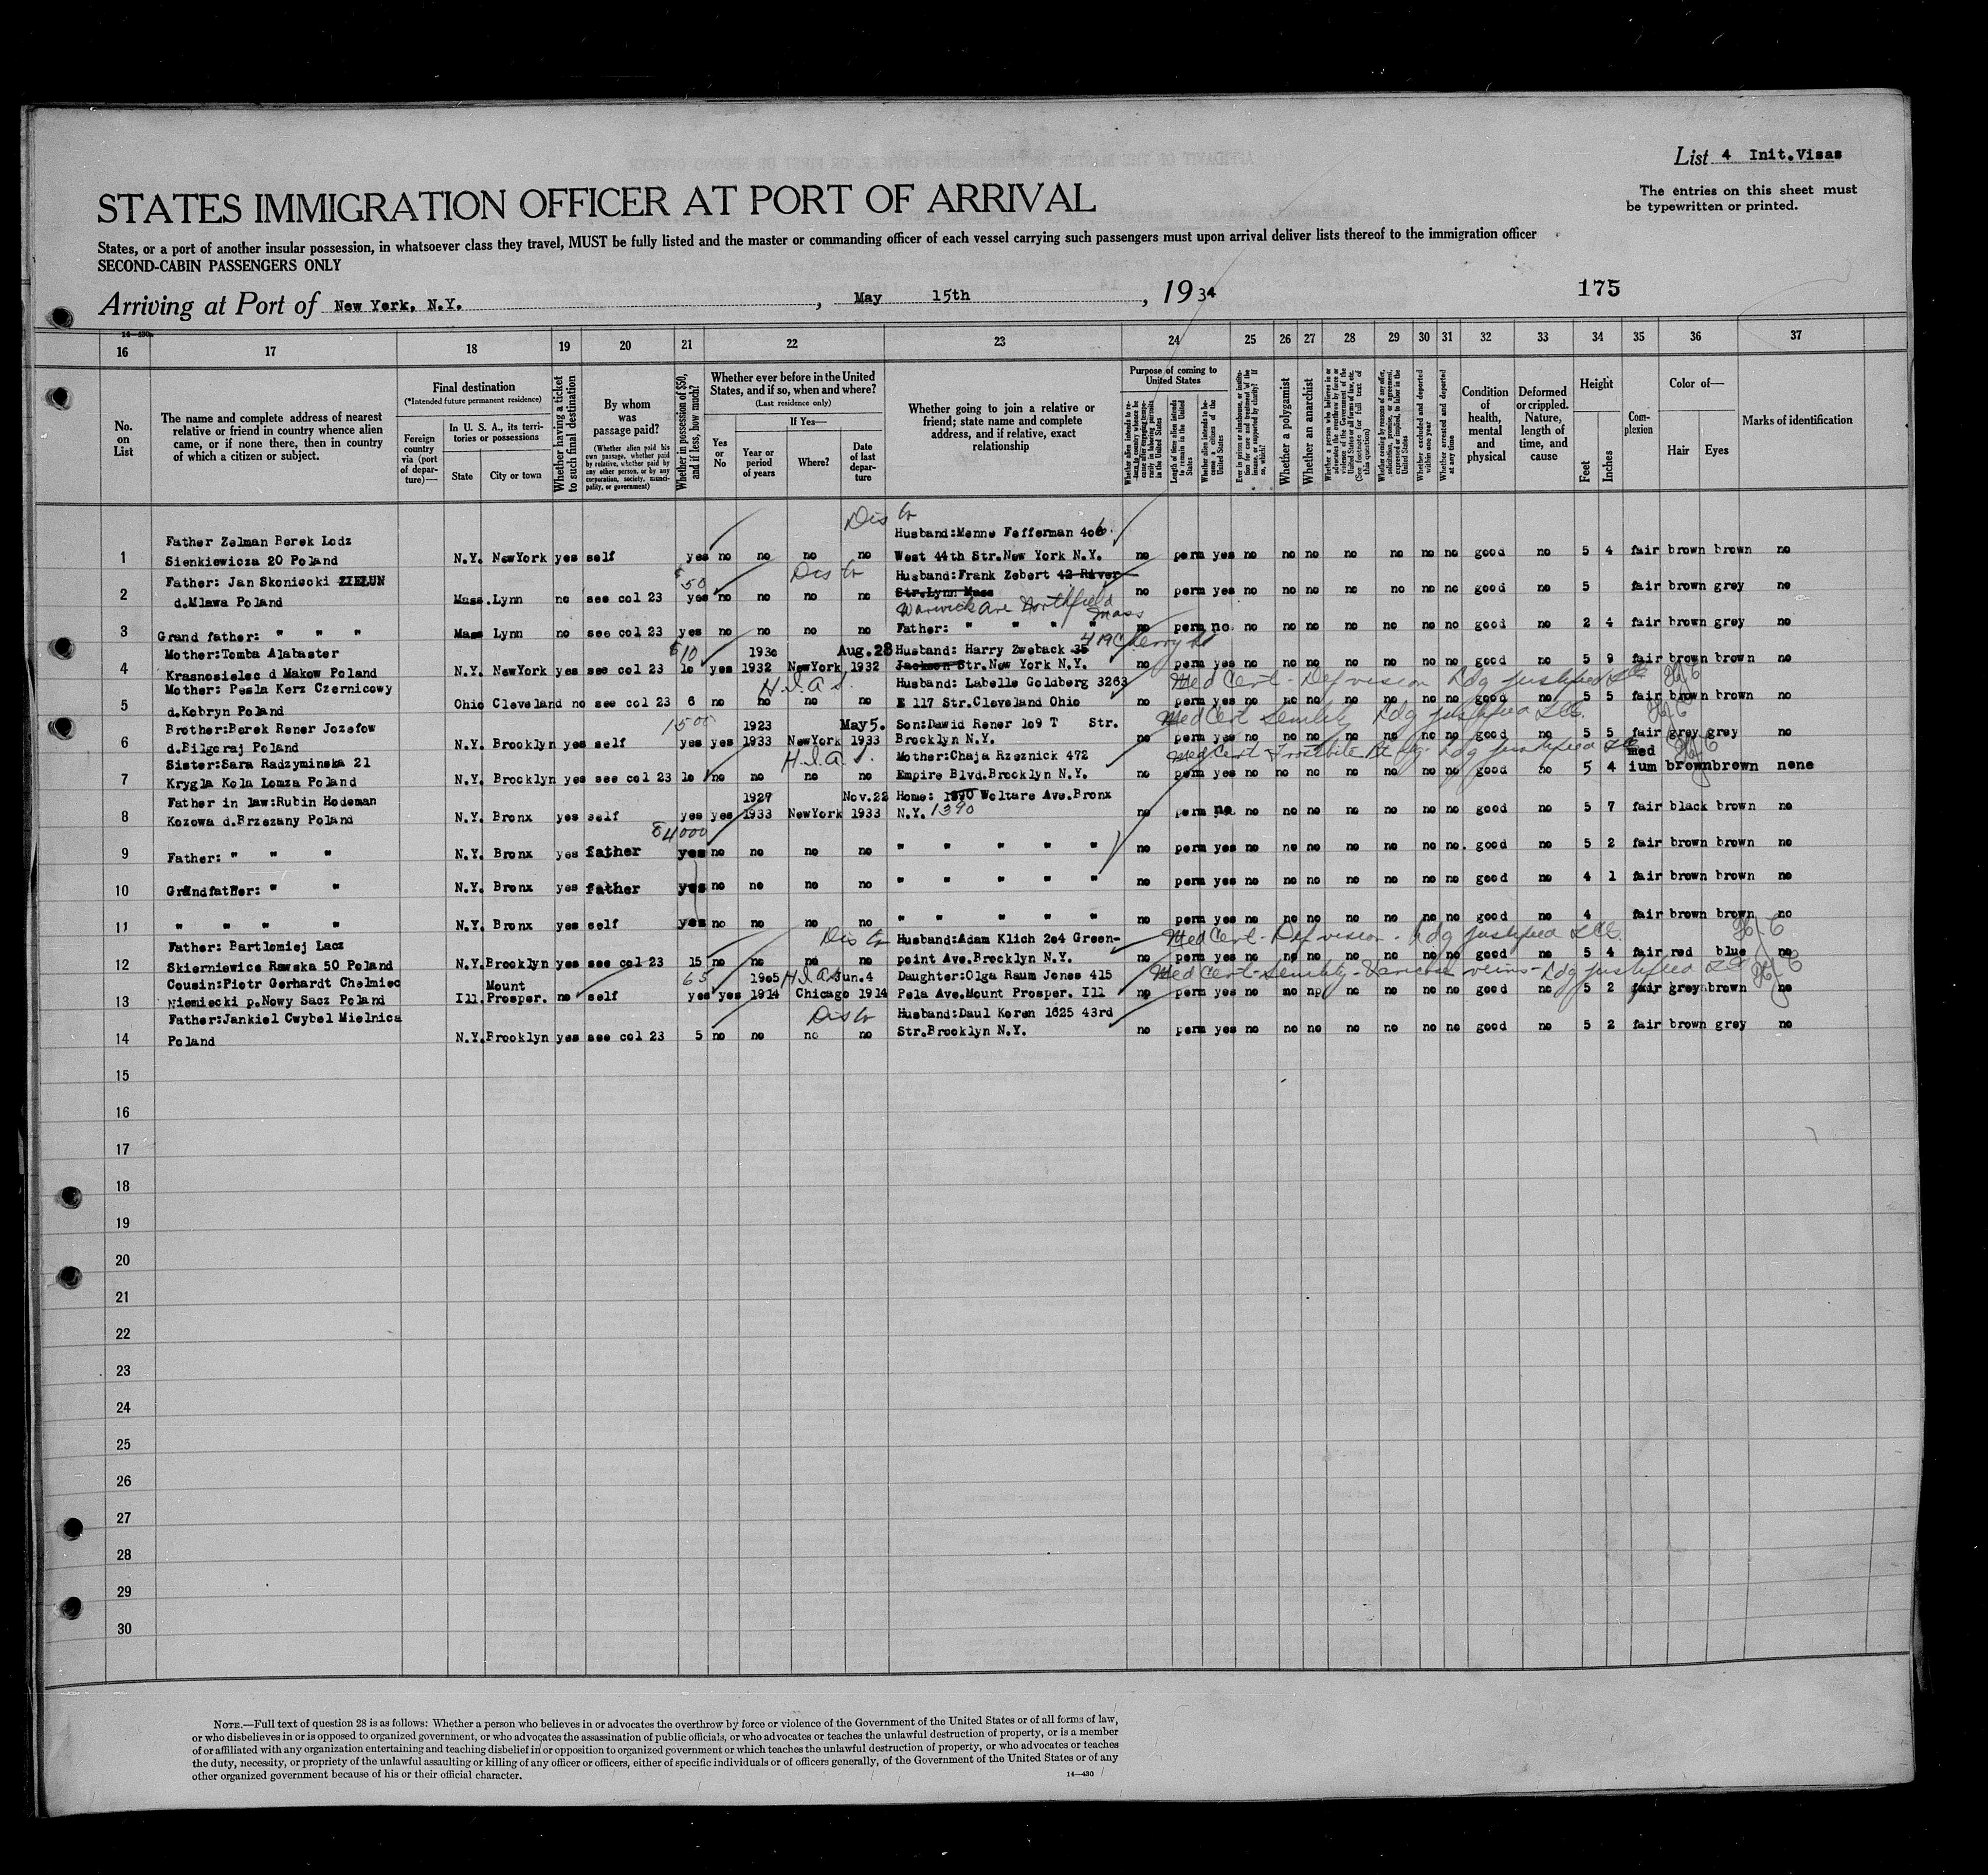 List 4 Init.Visas
The entries on this sheet must
be typewritten or printed.
STATES IMMIGRATION OFFICER AT PORT OF ARRIVAL
States, or a port of another insular possession, in whatsoever class they travel, MUST be fully listed and the master or commanding officer of each vessel carrying such passengers must upon arrival deliver lists thereof to the immigration officer
SECOND-CABIN PASSENGERS ONLY
175
Arriving at Port of New York, N.Y. , May 15th , 1934
14—430
16 17 18 19 20 21 22 23 24 25 26 27 28 29 30 31 32 33 34 35 36 37
No. on List
The name and complete address of nearest relative or friend in country whence alien came, or if none there, then in country of which a citizen or subject.
Final destination
(*Intended future permanent residence)
Foreign country via (port of departure)—
In U. S. A., its territories or possessions
State
City or town
Whether having a ticket to such final destination
By whom was passage paid?
(Whether alien paid his own passage, whether paid by relative, whether paid by any other person, or by any corporation, society, municipality, or government)
Whether in possession of $50, and if less, how much?
Whether ever before in the United States, and if so, when and where?
(Last residence only)
Yes or No
If Yes—
Year or period of years
Where?
Date of last departure
Whether going to join a relative or friend; state name and complete address, and if relative, exact relationship
Purpose of coming to United States
Length of time alien intends to remain in the United States
Whether alien intends to become a citizen of the United States
Whether a polygamist
Whether an anarchist
Whether excluded and deported within one year
Whether arrested and deported at any time
Condition of health, mental and physical
Deformed or crippled. Nature, length of time, and cause
Height
Feet
Inches
Complexion
Color of—
Hair
Eyes
Marks of identification
Father Zelman Berek Lodz Husband:Menne Fefferman 406
1 Sienkiewicza 20 Poland N.Y. NewYork yes self yes no no no no West 44th Str.New York N.Y. no perm yes no no no no no no no good no 5 4 fair brown brown no
Father: Jan Skonieoki ZIELUN 50 Husband:Frank Zebert 42 River
2 d.Mlawa Poland Mass. Lynn no see col 23 yes no no no no Str.Lynn Mass no perm yes no no no no no no no good no 5 fair brown grey no
Warwick Ave Northfield Mass
3 Grand father: " " " Mass Lynn no see col 23 yes no no no no Father: " " " " no perm no no no no no no no no good no 2 4 fair brown grey no
Mother:Tomba Alabaster $10 1930 Aug.28 Husband: Harry Zweback 35 419 Cherry St
4 Krasnosielec d Makow Poland N.Y. NewYork yes see col 23 10 yes 1932 NewYork 1932 Jackson Str.New York N.Y. no perm yes no no no no no no no good no 5 9 fair brown brown no
Mother: Pesla Kerz Czernicowy H.I.A.S. Husband: Labelle Goldberg 3263 Med Cert - Def vision Ldg justified
5 d.Kobryn Poland Ohio Cleveland no see col 23 6 no no no no E 117 Str.Cleveland Ohio no perm yes no no no no no no no good no 5 5 fair brown brown no
Brother:Berek Rener Jozefow 1500 1923 May5. Son:Dawid Rener 109 T Str. Med Cert Senility Ldg justified
6 d.Bilgoraj Poland N.Y. Brooklyn yes self yes yes 1933 NewYork 1933 Brooklyn N.Y. no perm yes no no no no no no no good no 5 5 fair grey grey no
Sister:Sara Radzyminska 21 H.I.A.S. Mother:Chaja Rzeznick 472 Med Cert Ldg justified med
7 Krygla Kola Lomza Poland N.Y. Brooklyn yes see col 23 10 no no no no Empire Blvd.Brooklyn N.Y. no perm yes no no no no no no no good no 5 4 ium brown brown none
Father in law:Rubin Hodeman 1927 Nov.22 Home: 1890 Woltare Ave.Bronx
8 Kozowa d.Brzezany Poland N.Y. Bronx yes self yes yes 1933 NewYork 1933 N.Y. 1390 no perm no no no no no no no no good no 5 7 fair black brown no
$4000
9 Father: " " " N.Y. Bronx yes father yes no no no no " " " " " no perm yes no no no no no no no. good no 5 2 fair brown brown no
10 Grandfather: " " N.Y. Bronx yes father yes no no no no " " " " " no perm yes no no no no no no no good no 4 1 fair brown brown no
11 " " " " N.Y. Bronx yes self yes no no no no " " " " " no perm yes no no no no no no no good no 4 fair brown brown no
Father: Bartlomiej Lacz Husband:Adam Klich 204 Green- Med Cert - Def vision - Ldg justified
12 Skierniewice Rawska 50 Poland N.Y. Brooklyn yes see col 23 15 no no no no point Ave.Brooklyn N.Y. no perm yes no no no no no no no good no 5 4 fair red blue no
Cousin:Pietr Gerhardt Chelmiec Mount 65 1905 H.I.A.S. Jun.4 Daughter:Olga Raum Jones 415 Med Cert - Senility - Varicose veins - Ldg justified
13 Niemiecki p.Nowy Sacz Poland Ill. Prosper. no self yes yes 1914 Chicago 1914 Pela Ave.Mount Prosper. Ill no perm yes no no no no no no no good no 5 2 fair grey brown no
Father:Jankiel Cwybel Mielnica Husband:Daul Koren 1625 43rd
14 Poland N.Y. Brooklyn yes see col 23 5 no no no no Str.Brooklyn N.Y. no perm yes no no no no no no no good no 5 2 fair brown grey no
15
16
17
18
19
20
21
22
23
24
25
26
27
28
29
30
NOTE.—Full text of question 28 is as follows: Whether a person who believes in or advocates the overthrow by force or violence of the Government of the United States or of all forms of law,
or who disbelieves in or is opposed to organized government, or who advocates the assassination of public officials, or who advocates or teaches the unlawful destruction of property, or is a member
of or affiliated with any organization entertaining and teaching disbelief in or opposition to organized government or which teaches the unlawful destruction of property, or who advocates or teaches
the duty, necessity, or propriety of the unlawful assaulting or killing of any officer or officers, either of specific individuals or of officers generally, of the Government of the United States or of any
other organized government because of his or their official character.
14—430